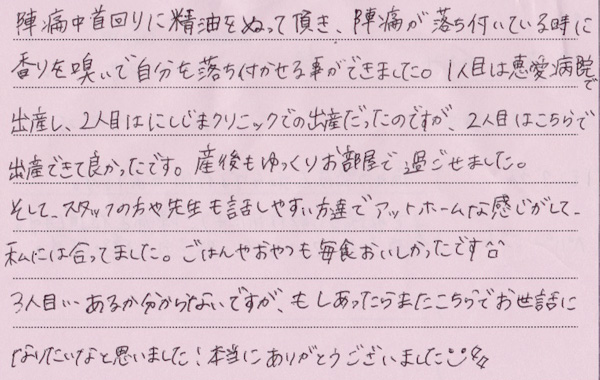 陣痛中首回りに精油をぬって頂き、陣痛が落ち付いている時に
香りを嗅いで自分を落ち付かせる事ができました。1人目は恵愛病院で
出産し、2人目はにしじまクリニックでの出産だったのですが、2人目はこちらで
出産できて良かったです。産後もゆっくりお部屋で過ごせました。
そして、スタッフの方や先生も話しやすい方達でアットホームな感じがして、
私には合ってました。ごはんやおやつも毎食おいしかったです^^
3人目…あるか分からないですが、もしあったらまたこちらでお世話に
なりたいなと思いました!本当にありがとうございました